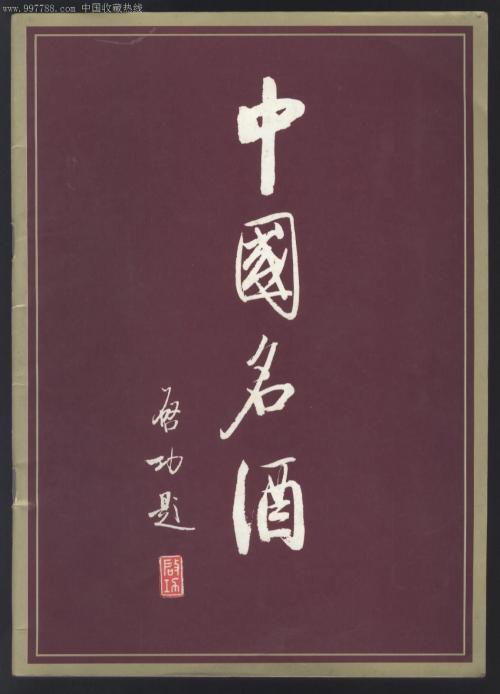 www.997788.com 中国收藏热线
中國名酒
啓功題
啓功